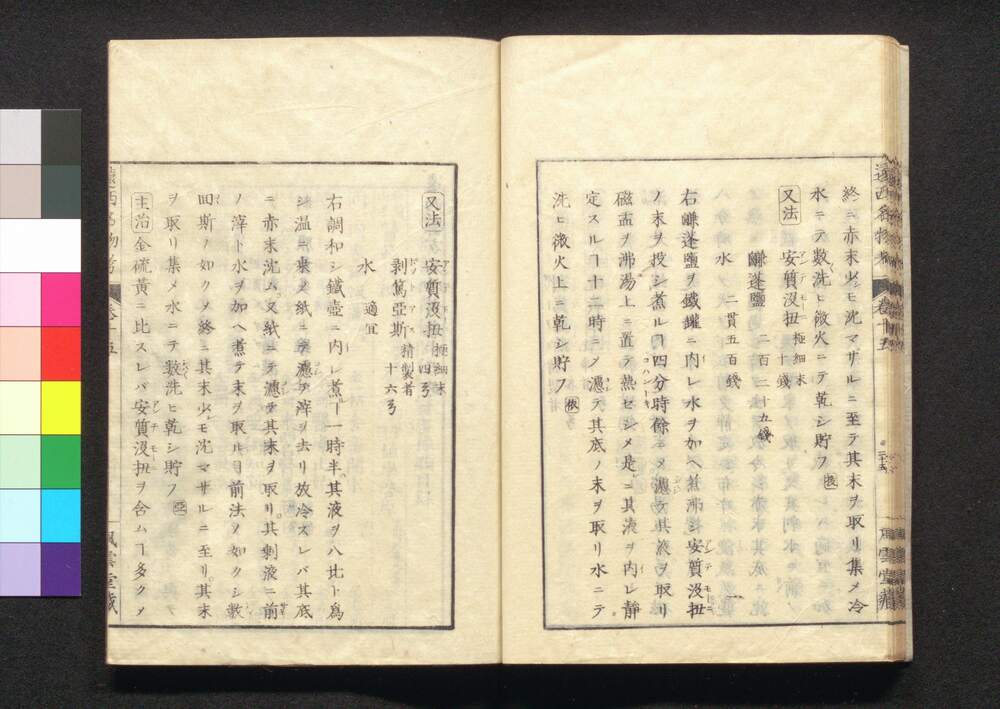 終ニ赤末少シモ沈マザルニ至テ其末ヲ取リ集メ冷
水ニテ數洗ヒ微火ニテ乾シ貯フ
又法 安質没扭 極細末 二十錢
鹻蓬鹽 二百二十五錢
水 二貫五百錢
右鹻蓬鹽ヲ鐵罐ニ内レ水ヲ加ヘ煮沸シ安質没扭
ノ末ヲ投シ煮ルヿ四分時餘ニメ濾テ其液ヲ取リ
磁盂ヲ沸湯上ニ置テ熱セシメ是ニ其液ヲ内レ靜
定スルヿ十二時ニメ濾テ其底ノ末ヲ取リ水ニテ
洗ヒ微火上ニ乾シ貯フ 依
遠西名物考 卷十五
風雲堂藏
又法 安質没扭 極細末 四弓
剥篤亞斯 精製者 十六弓
水 適宜
右調和シ鐵壺ニ内レ煮ヿ一時半其液ヲ八比ト爲
シ温ニ乗メ紙ニテ濾テ滓ヲ去リ放冷スレバ其底
ニ赤末沈ム又紙ニテ濾テ其末ヲ取リ其剰液ニ前
ノ滓ト水ヲ加ヘ煮テ末ヲ取ル前法ノ如クシ數
回斯ノ如クメ終ニ其末少シモ沈マザルニ至リ其末
ヲ取リ集メ水ニテ數洗ヒ乾シ貯フ
主治 金硫黃ニ比スレバ安質没扭ヲ含ムヿ多クメ
遠西名物考 卷十五
風雲堂藏